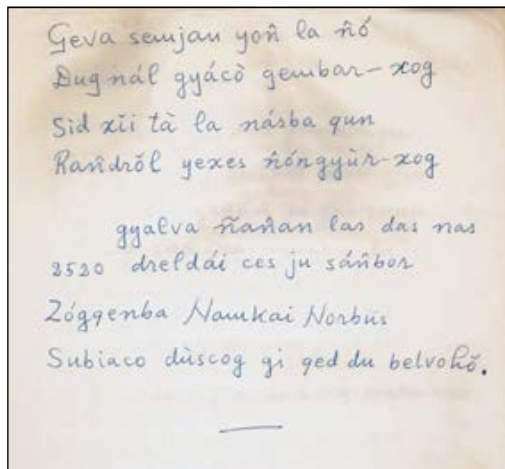 Geva semjan yoñ la ñó
Dugnál gyácò gembar-xog
Sid xĭi tà la násba qun
Rañdròl yexes ñóngyùr-xog
gyalva ñañan las das nas
2520 dreldái ces ju sáñbor
Zógqenba Namkai Norbus
Subiaco dùscog gi qed du belvohŏ.